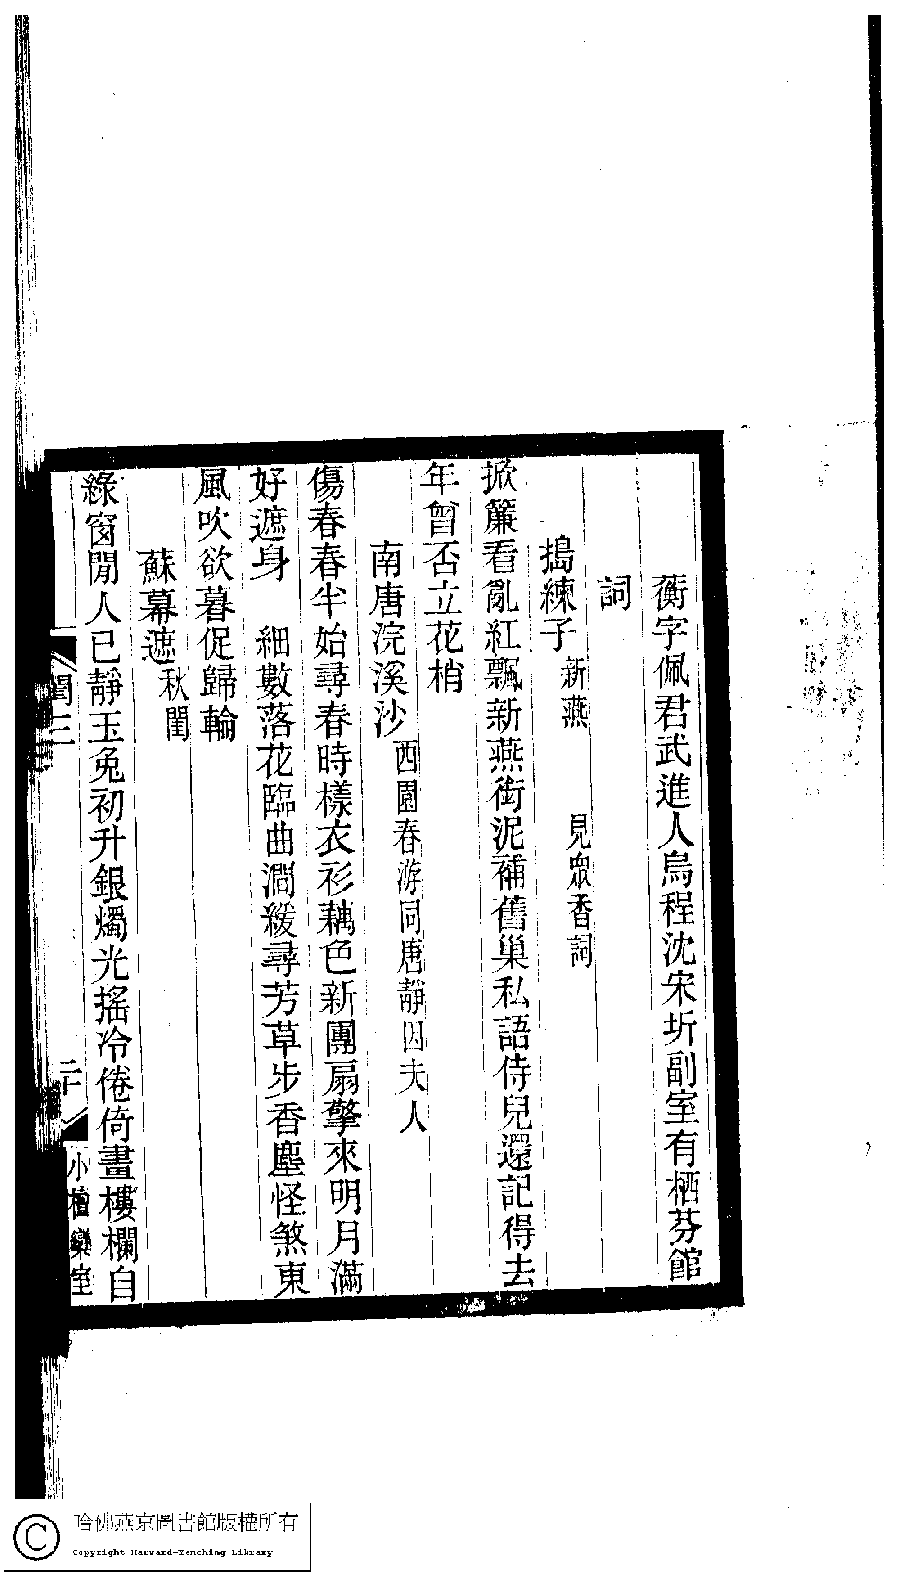 蘅字佩君武進人烏程沈宋圻副室有栖芬館
詞
搗練子 新燕 見眾香詞
掀簾看亂紅飄新燕銜泥補舊巢私語侍兒還記得去
年曾否立花梢
南唐浣溪沙 西園春游同唐靜因夫人
傷春春半始尋春時樣衣衫藕色新團扇擎來明月滿
好遮身 細數落花臨曲澗緩尋芳草步香塵怪煞東
風吹欲暮促歸輪
蘇幕遮 秋閨
綠窗閒人已靜玉兔初升銀燭光搖冷倦倚畫樓欄自
閨三
二十
小檀欒室
哈佛燕京圖書館版權所有
Copyright Harvard-Yenching Library